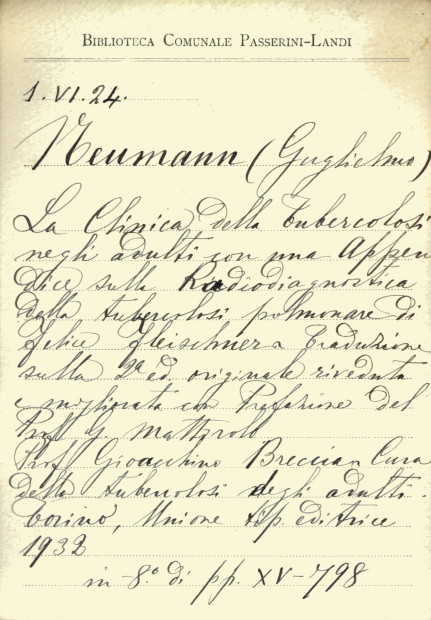 BIBLIOTECA COMUNALE PASSERINI-LANDI
1.VI.24.
Neumann (Guglielmo)
La Clinica della tubercolosi
negli adulti con una Appen
dice sulla Radiodiagnostica
della tubercolosi polmonare di
Felice Fleischner Traduzione
sulla 2a ed. originale riveduta
e migliorata con Prefazione del
Prof G. Mattirolo
Prof Gioacchino Breccia Cura
della tubercolosi degli adulti.
Torino, Unione tip. editrice
1932
in -8.° di pp. XV-798